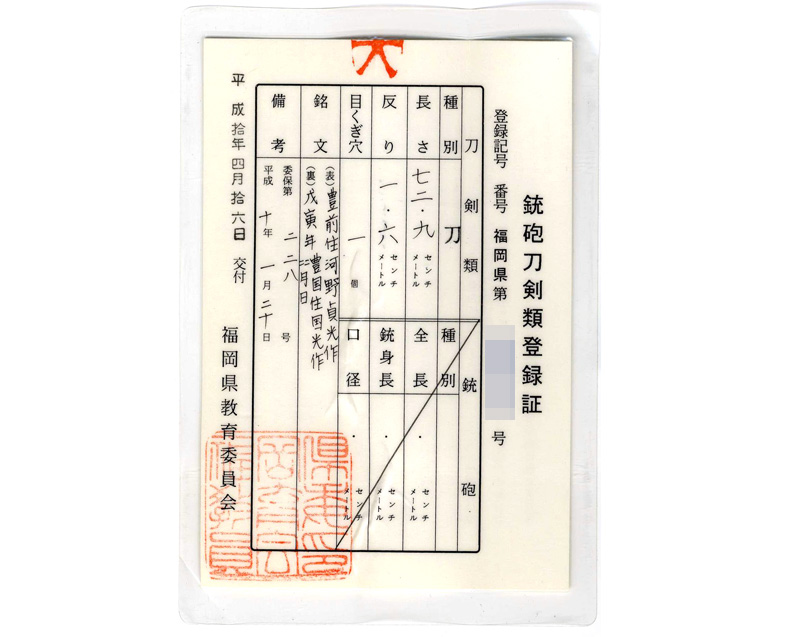 大
銃砲刀剣類登録証
登録記号 番号 福岡県第 号
刀剣類
種別 刀
長さ 七二・九 センチメートル
反り 一・六 センチメートル
目くぎ穴 一 個
銘文 (表)豊前住河野貞光作 豊国住国光作
(裏)戊寅年二月日
備考 委保第 二二八 号
平成 十年 一月 二十日
銃砲
種別
全長 ・ センチメートル
銃身長 ・ センチメートル
口径 ・ センチメートル
平成拾年四月拾六日 交付
福岡県教育委員会